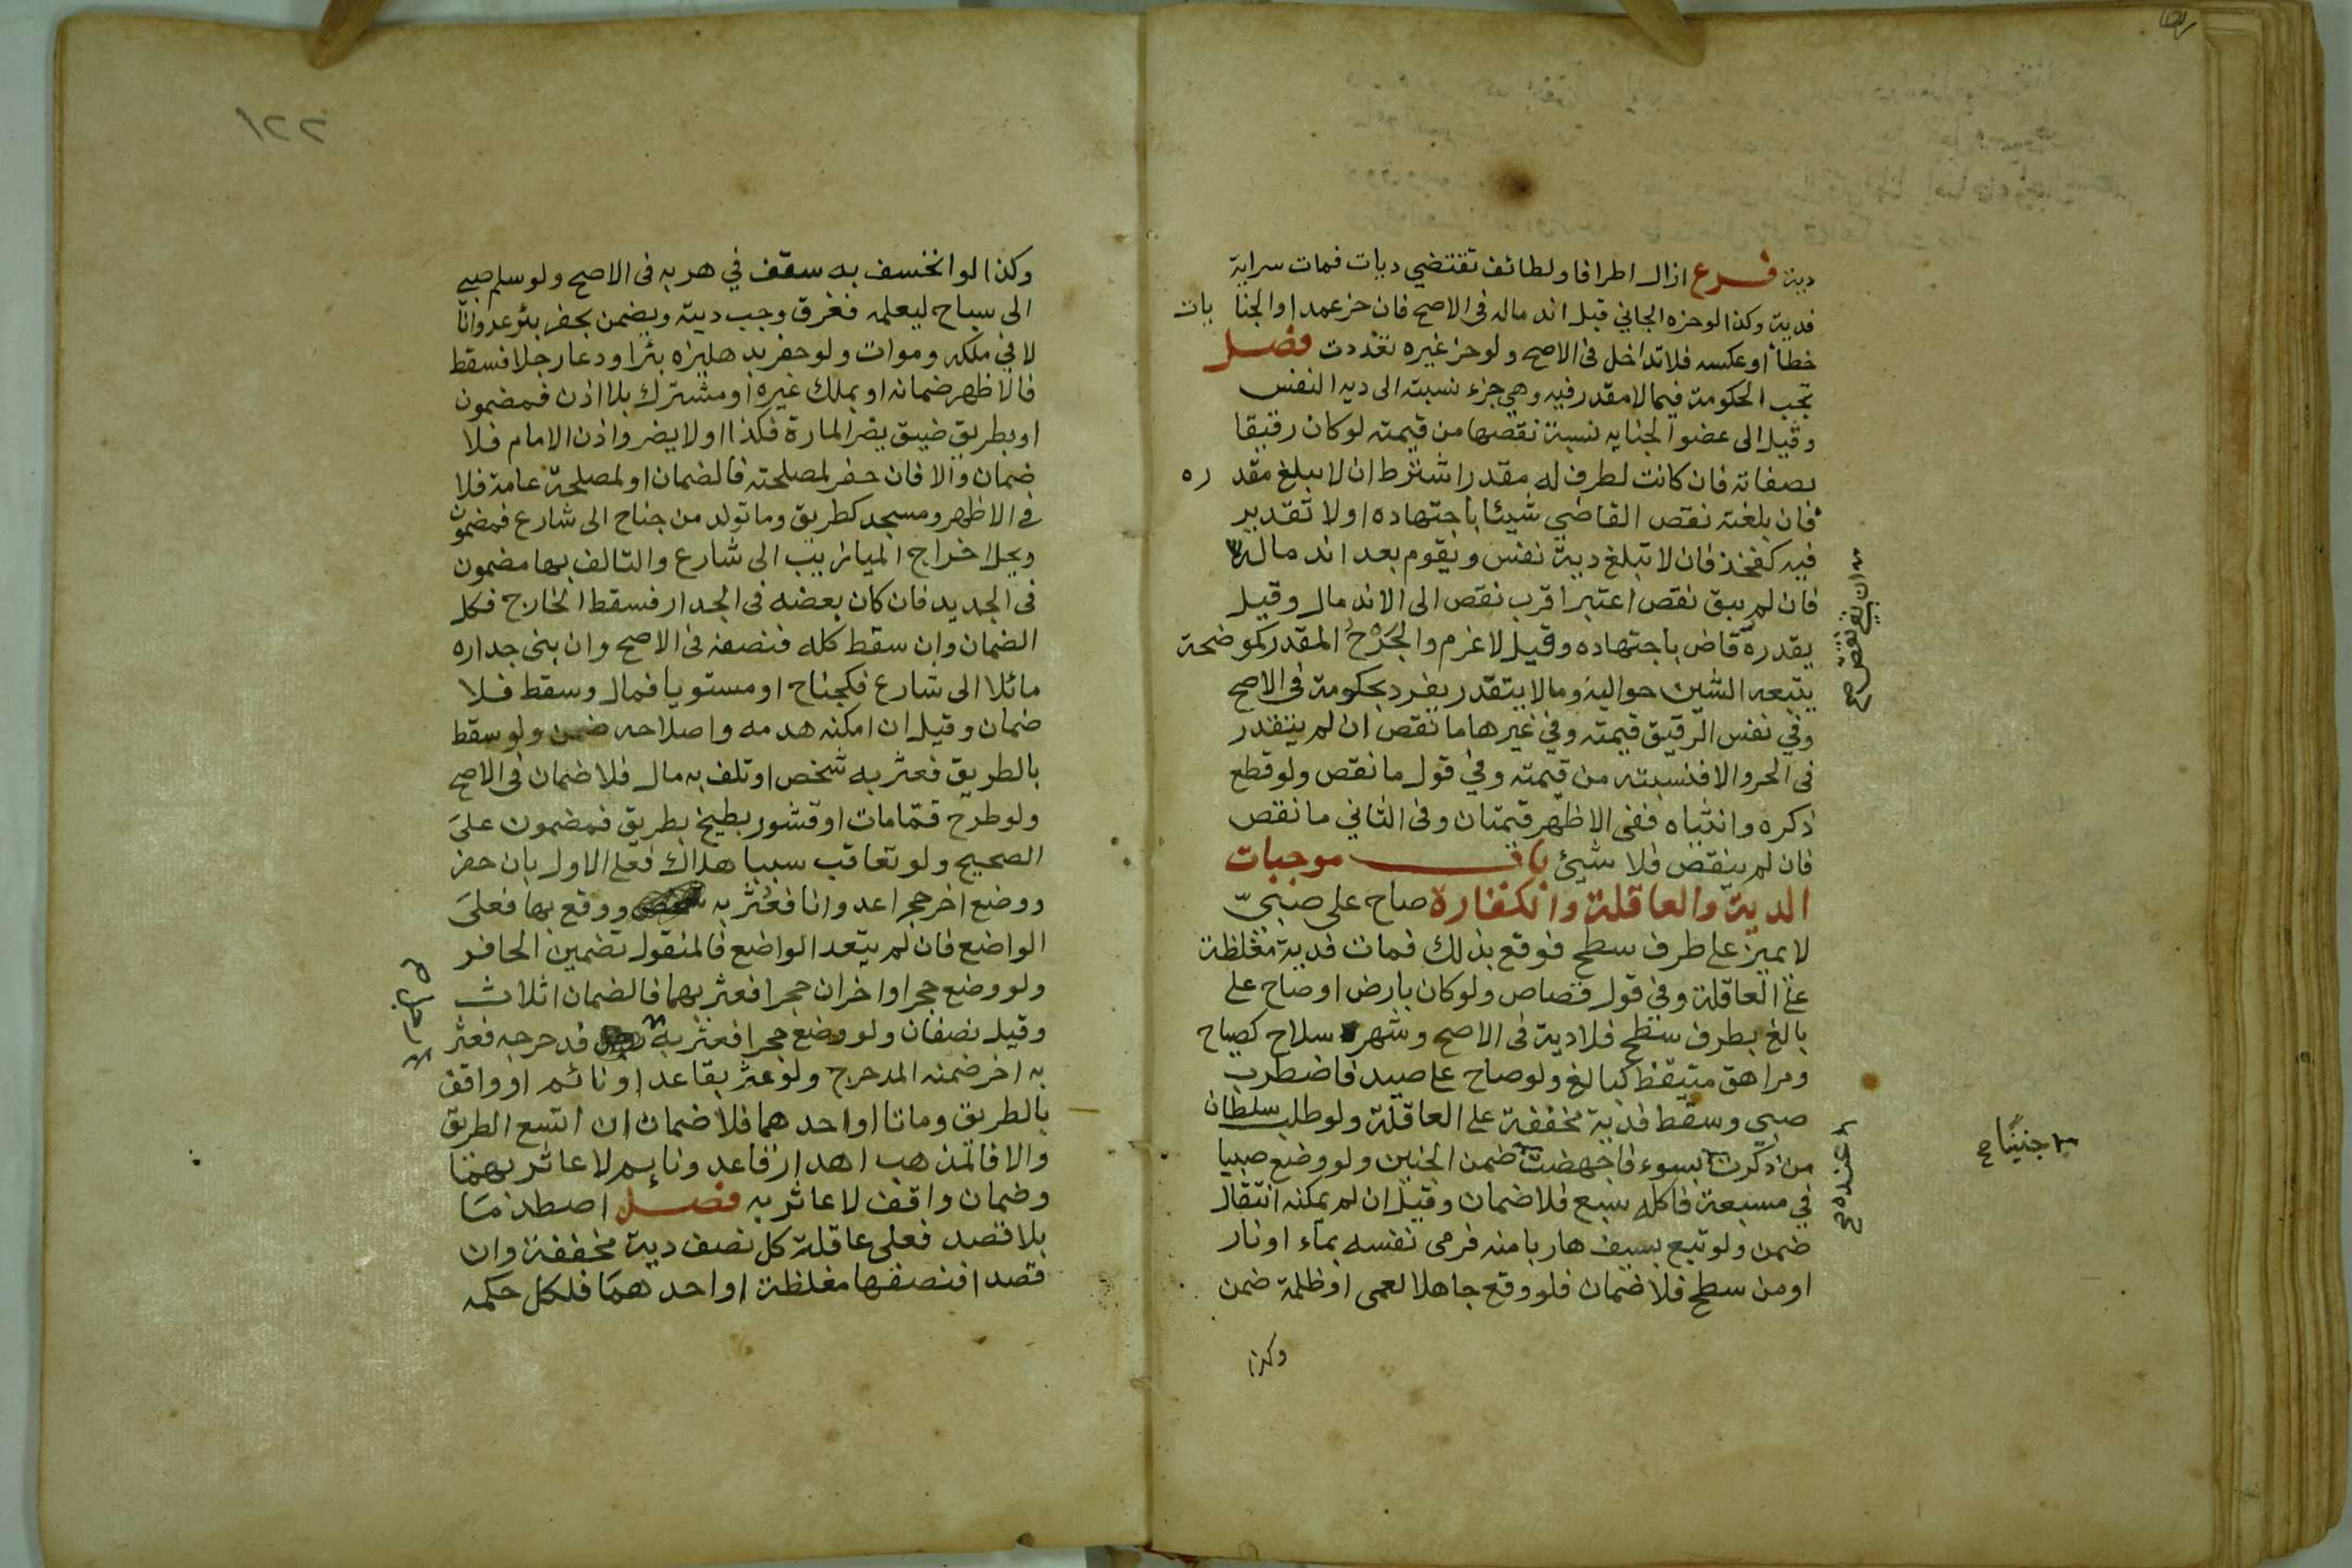 دية فرع ازال اطرافا ولطائف تقتضي ديات فمات سراية
فدية وكذا لوحزه الجاني قبل اندماله فى الاصح فان حز عمدا والجنايات
خطأ او عكسه فلا تداخل فى الاصح ولو حز غيره تعددت فصل
تجب الحكومة فيما لا مقدر فيه وهي جزء نسبته الى ديه النفس
وقيل الى عضو الجنايه نسبة نقصها من قيمته لو كان رقيقا
بصفاته فان كانت لطرف له مقدر اشترط ان لا يبلغ مقدره
فان بلغته نقص القاضي شيئا باجتهاده او لا تقدير
فيه كفخذ فان لا تبلغ دية نفس ويقوم بعد اندماله
فان لم يبق نقص اعتبر اقرب نقص الى الاندمال وقيل
يقدره قاض باجتهاده وقيل لا غرم والجرح المقدر كموضحة
يتبعه الشين حواليه وما لا يتقدر يفرد بحكومة فى الاصح
وفي نفس الرقيق قيمته وفي غيرها ما نقص ان لم يتقدر
فى الحر والا فنسبته من قيمته وفي قول ما نقص ولو قطع
ذكره وانثياه ففى الاظهر قيمتان وفى الثاني ما نقص
فان لم ينقص فلا شيئ باب موجبات
الدية والعاقلة والكفارة صاح على صبيّ
لا يميز على طرف سطح فوقع بذلك فمات فدية مغلظة
على العاقلة وفي قول قصاص ولو كان بارض او صاح على
بالغ بطرف سطح فلا دية فى الاصح وشهر سلاح كصياح
ومراهق متيقظ كبالغ ولو صاح على صيد فاضطرب
صبى وسقط فدية مخففة على العاقلة ولو طلب سلطان
من ذكرت بسوء فاجهضت ضمن الجنين ولو وضع صبيا
في مسبعة فاكله سبع فلا ضمان وقيل ان لم يمكنه انتقال
ضمن ولو تبع بسيف هاربا منه فرمى نفسه بماء او نار
او من سطح فلا ضمان فلو وقع جاهلا لعمى او ظلمة ضمن
وكذا
عنده
جنينًا
١٢٢
وكذا لو انخسف به سقف في هربه فى الاصح ولو سلم صبي
الى سباح ليعلمه فغرق وجب ديته ويضمن بحفر بئر عدوانا
لا في ملكه وموات ولو حفر بدهليزه بئرا ودعا رجلا فسقط
فالاظهر ضمانه او بملك غيره او مشترك بلا اذن فمضمون
او بطريق ضيق يضر المارة فكذا او لا يضر واذن الامام فلا
ضمان والا فان حفر لمصلحته فالضمان او لمصلحة عامة فلا
في الاظهر ومسجد كطريق وما تولد من جناح الى شارع فمضمون
ويحل اخراج الميازيب الى شارع والتالف بها مضمون
فى الجديد فان كان بعضه فى الجدار فسقط الخارج فكل
الضمان وان سقط كله فنصفه فى الاصح وان بنى جداره
مائلا الى شارع فكجناح او مستويا فمال وسقط فلا
ضمان وقيل ان امكنه هدمه واصلاحه ضمن ولو سقط
بالطريق فعثر به شخص او تلف به مال فلا ضمان فى الاصح
ولو طرح قمّامات او قشور بطيخ بطريق فمضمون على
الصحيح ولو تعاقب سببا هلاك فعلى الاول بان حفر
ووضع اخر حجرا عدوانا فعثر به ووقع بها فعلى
الواضع فان لم يتعد الواضع فالمنقول تضمين الحافر
ولو وضع حجرا واخران حجرا فعثر بهما فالضمان اثلاث
وقيل نصفان ولو وضع حجرا فعثر به فدحرجه فعثر
به اخر ضمنه المدحرج ولو عثر بقاعد او نائم او واقف
بالطريق وماتا او احدهما فلا ضمان ان اتسع الطريق
والا فالمذهب اهدار قاعد ونايم لا عاثر بهما
وضمان واقف لا عاثر به فصل اصطدما
بلا قصد فعلى عاقلة كل نصف دية مخففة وان
قصدا فنصفها مغلظة او احدهما فلكل حكمه